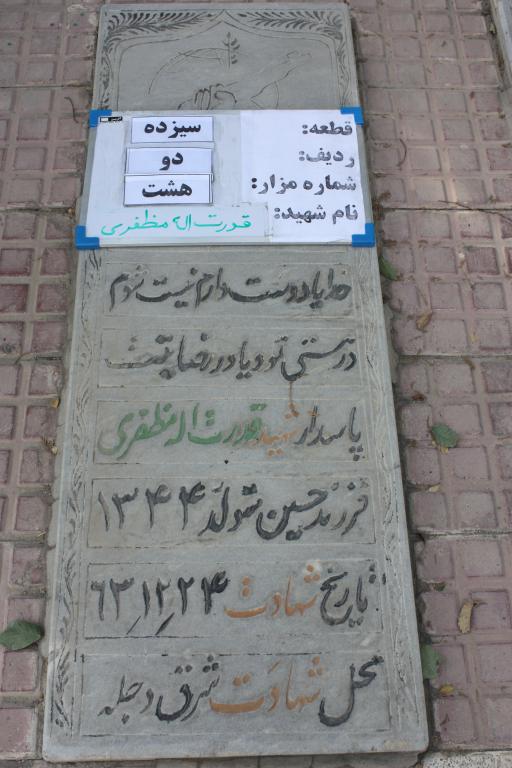 قطعه: سیزده
ردیف: دو
شماره مزار: هشت
نام شهید: قدرت اله مظفری
خدایا دوست دارم نیست شوم
در هستی تو و یا در رضایت
پاسدار شهید قدرت اله مظفری
فرزند حسین متولد ۱۳۴۴
تاریخ شهادت ۶۳٫۱۲٫۲۴
محل شهادت شرق دجله